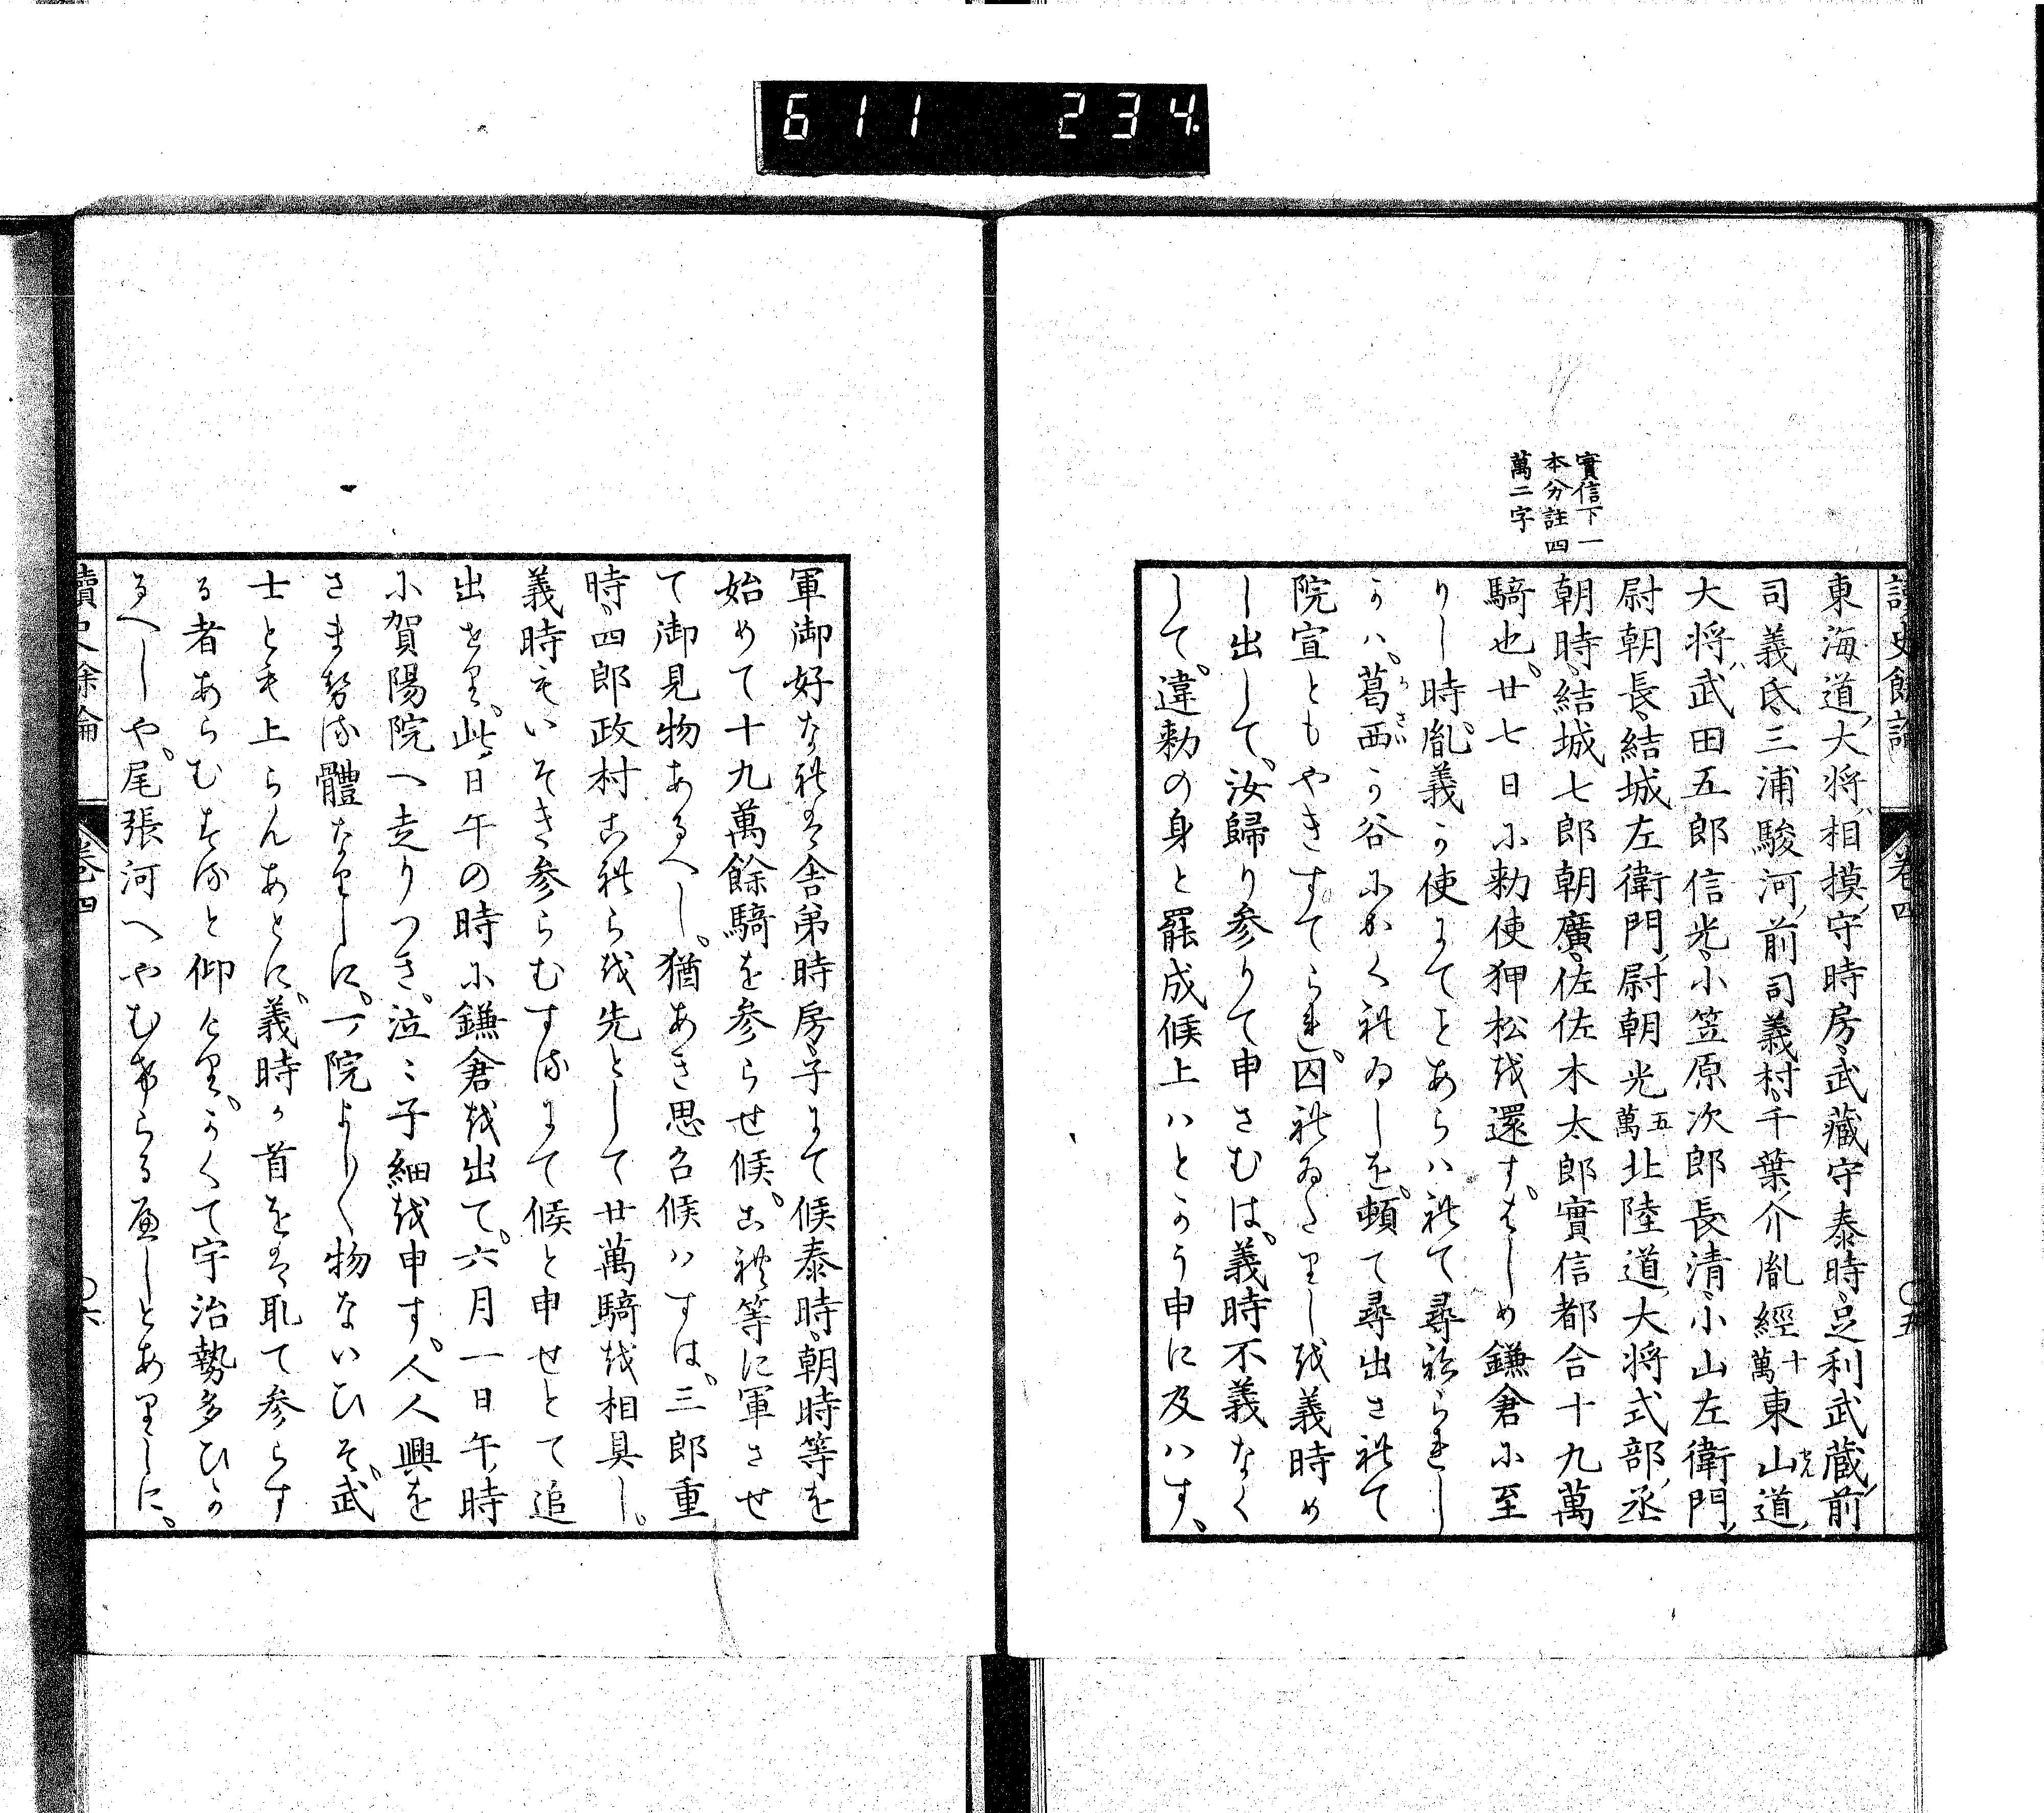 611 234.
實信下一
本分註四
萬二字
讀史餘論 卷四 〇五
東海道、大将、相摸、守時房、武藏守泰時、足利武蔵、前
司義氐、三浦駿河、前司義村、千葉、介胤經十萬東山道、
大将、武田五郎信光、小笠原次郎長清、小山左衛門、
尉朝長、結城左衛門、尉朝光五萬北陸道、大将式部、丞
朝時、結城七郎朝廣、佐佐木太郎實信都合十九萬
騎也。廿七日に勅使狎松越還す。はしめ鎌倉に至
りし時。胤義か使まてをあらハれて尋ねられし
かハ。葛西か谷にかくれゐしを。頓て尋出されて
院宣ともやきすてられ。囚れゐたりし越義時め
し出して。汝歸り参りて申さむは。義時不義なく
して。違勅の身と罷成候上ハとかう申に及ハす。
軍御好なれは舎弟時房、子まて候泰時、朝時等を
始めて十九萬餘騎を参らせ候。これ等に軍させ
て御見物あるへし。猶あき思召候ハすは。三郎重
時、四郎政村これら越先として廿萬騎越相具し。
義時もいそき参らむするまて候と申せとて追
出せり。此、日午の時に鎌倉越出て。六月一日午、時
に賀陽院へ走りつき。泣〻子細越申す。人人興を
さます勢る體なりしに。一院よりく物ないひそ。武
士とも上らんあとに。義時か首をは取て参らす
る者あらむするそと仰けり。かくて宇治勢多ひか
るへしや。尾張河へやむけらるへしとありしに。
讀史餘論 卷四 〇六